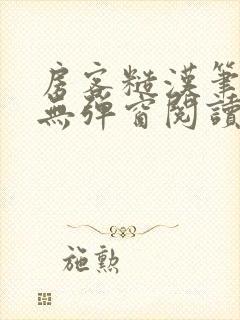 房客糙漢筆
無彈窗閱讀
施勲